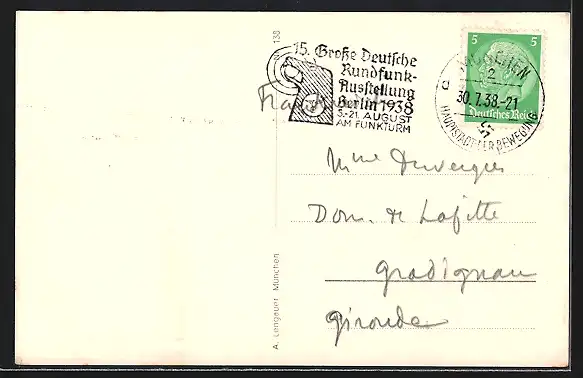 138
15. Große Deutsche
Rundfunk-
Ausstellung
Berlin 1938
5.-21. AUGUST
AM FUNKTURM
5 5
Deutsches Reich
MÜNCHEN
2
30.7.38-21
HAUPTSTADT DER BEWEGUNG
Mme Duvergier
Dom. de Lafitte
Gradignan
Gironde
A. Lengauer, München